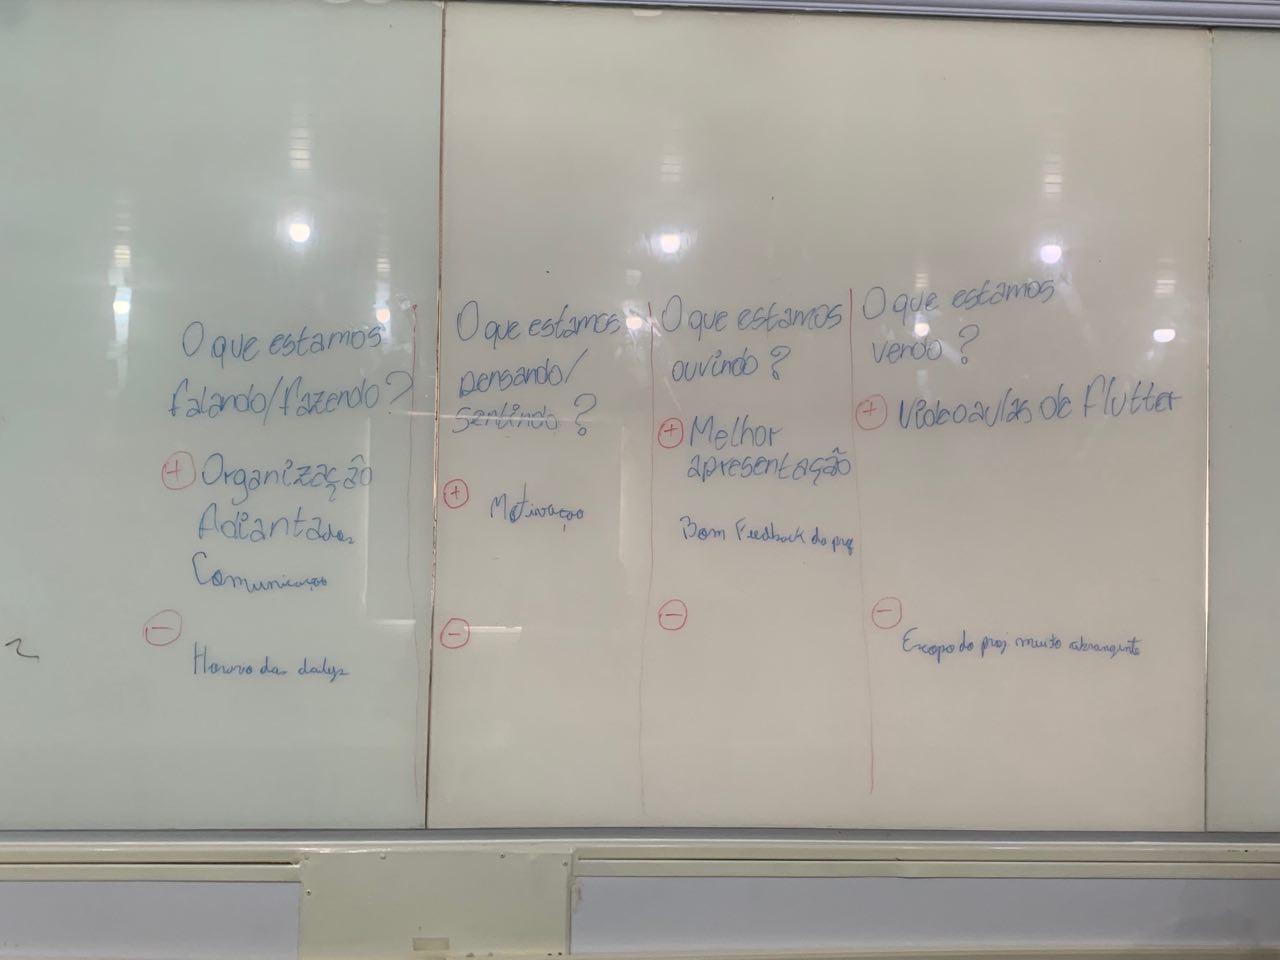 O que estamos
falando/fazendo?
+ Organização
Adiantados
Comunicação
-
Horario das dailys
O que estamos
pensando/
sentindo?
+ Motivação
-
O que estamos
ouvindo?
+ Melhor
apresentação
Bom Feedback do prof
-
O que estamos
vendo?
+ Videoaulas de flutter
-
Escopo do proj muito abrangente